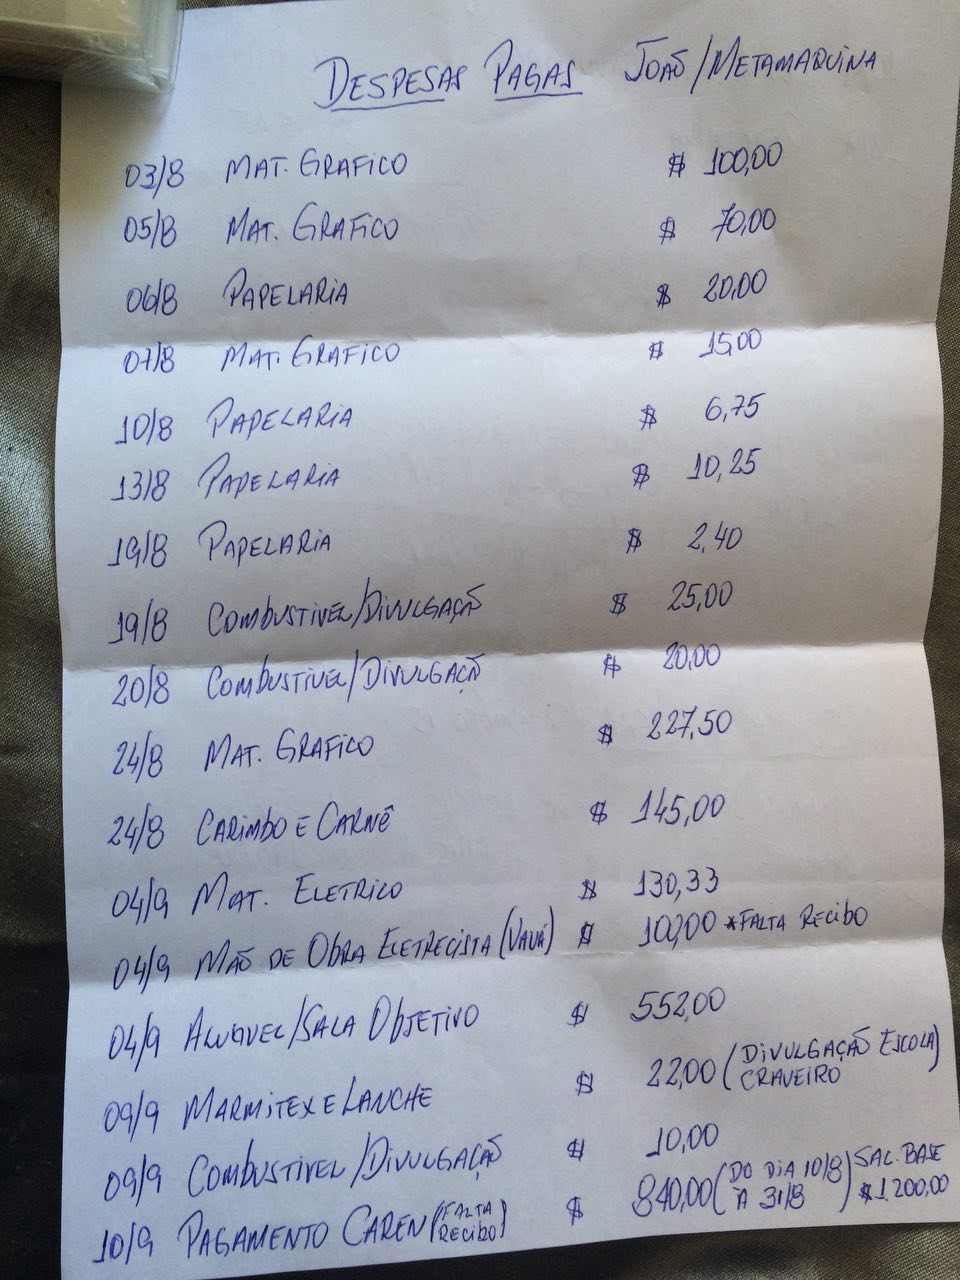 DESPESAS PAGAS JOÃO/METAMAQUINA
03/8 MAT. GRAFICO $ 100,00
05/8 MAT. GRAFICO $ 70,00
06/8 PAPELARIA $ 20,00
07/8 MAT. GRAFICO $ 15,00
10/8 PAPELARIA $ 6,75
13/8 PAPELARIA $ 10,25
19/8 PAPELARIA $ 2,40
19/8 COMBUSTIVEL/DIVULGAÇÃO $ 25,00
20/8 COMBUSTIVEL/DIVULGAÇÃO $ 20,00
24/8 MAT. GRAFICO $ 227,50
24/8 CARIMBO E CARNÊ $ 145,00
04/9 MAT. ELETRICO $ 130,33
04/9 MÃO DE OBRA ELETRECISTA (VAVÁ) $ 100,00 *FALTA RECIBO
04/9 ALUGUEL/SALA OBJETIVO $ 552,00
09/9 MARMITEX E LANCHE $ 22,00 (DIVULGAÇÃO ESCOLA CRAVEIRO)
09/9 COMBUSTIVEL/DIVULGAÇÃO $ 10,00
10/9 PAGAMENTO CAREN (FALTA RECIBO) $ 840,00 (DO DIA 10/8 À 31/8) SAL. BASE $ 1.200,00